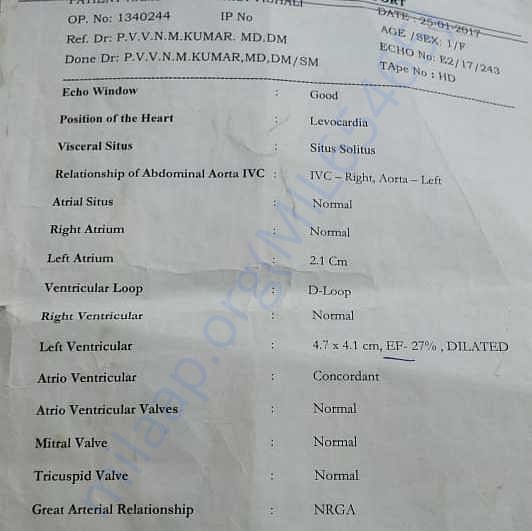 OP. No: 1340244 IP No
DATE : 25-01-2017
Ref. Dr: P.V.V.N.M.KUMAR. MD.DM
AGE /SEX: 1/F
Done Dr: P.V.V.N.M.KUMAR,MD,DM/SM
ECHO No: E2/17/243
TApe No : HD
Echo Window : Good
Position of the Heart : Levocardia
Visceral Situs : Situs Solitus
Relationship of Abdominal Aorta IVC : IVC – Right, Aorta – Left
Atrial Situs : Normal
Right Atrium : Normal
Left Atrium : 2.1 Cm
Ventricular Loop : D-Loop
Right Ventricular : Normal
Left Ventricular : 4.7 x 4.1 cm, EF- 27% , DILATED
Atrio Ventricular : Concordant
Atrio Ventricular Valves : Normal
Mitral Valve : Normal
Tricuspid Valve : Normal
Great Arterial Relationship : NRGA